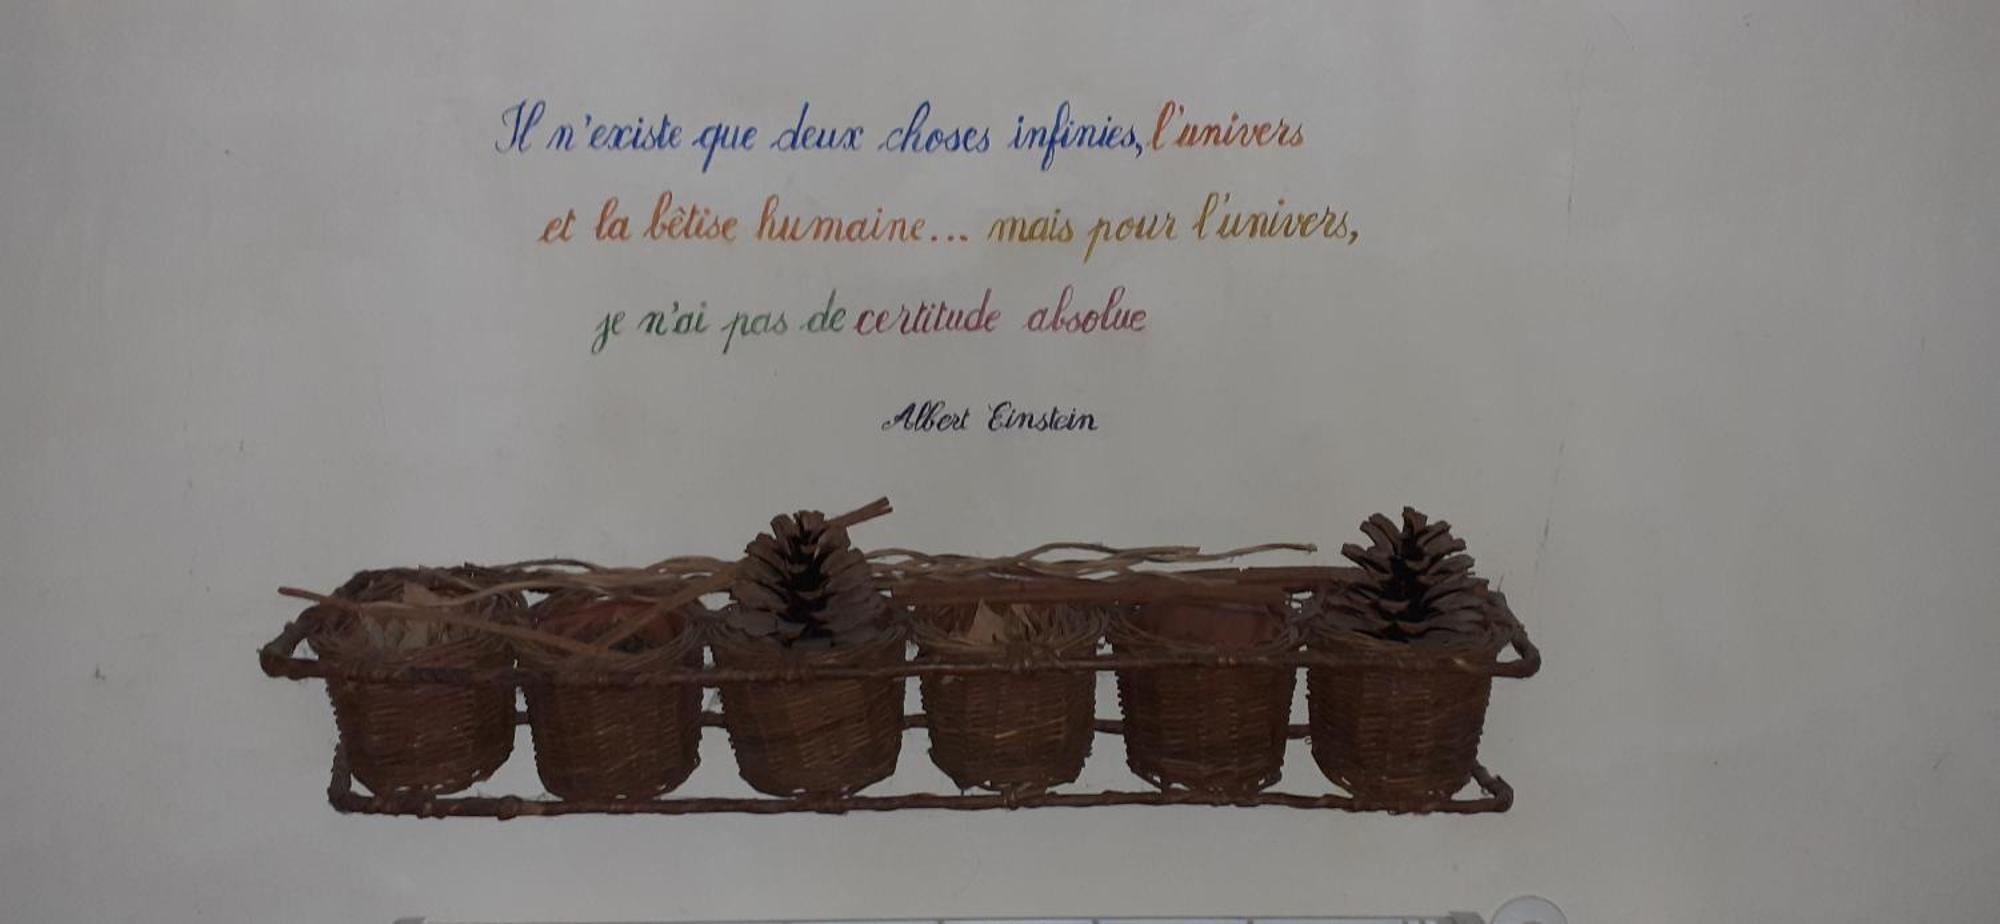 Il n'existe que deux choses infinies, l'univers
et la bêtise humaine... mais pour l'univers,
je n'ai pas de certitude absolue
Albert Einstein